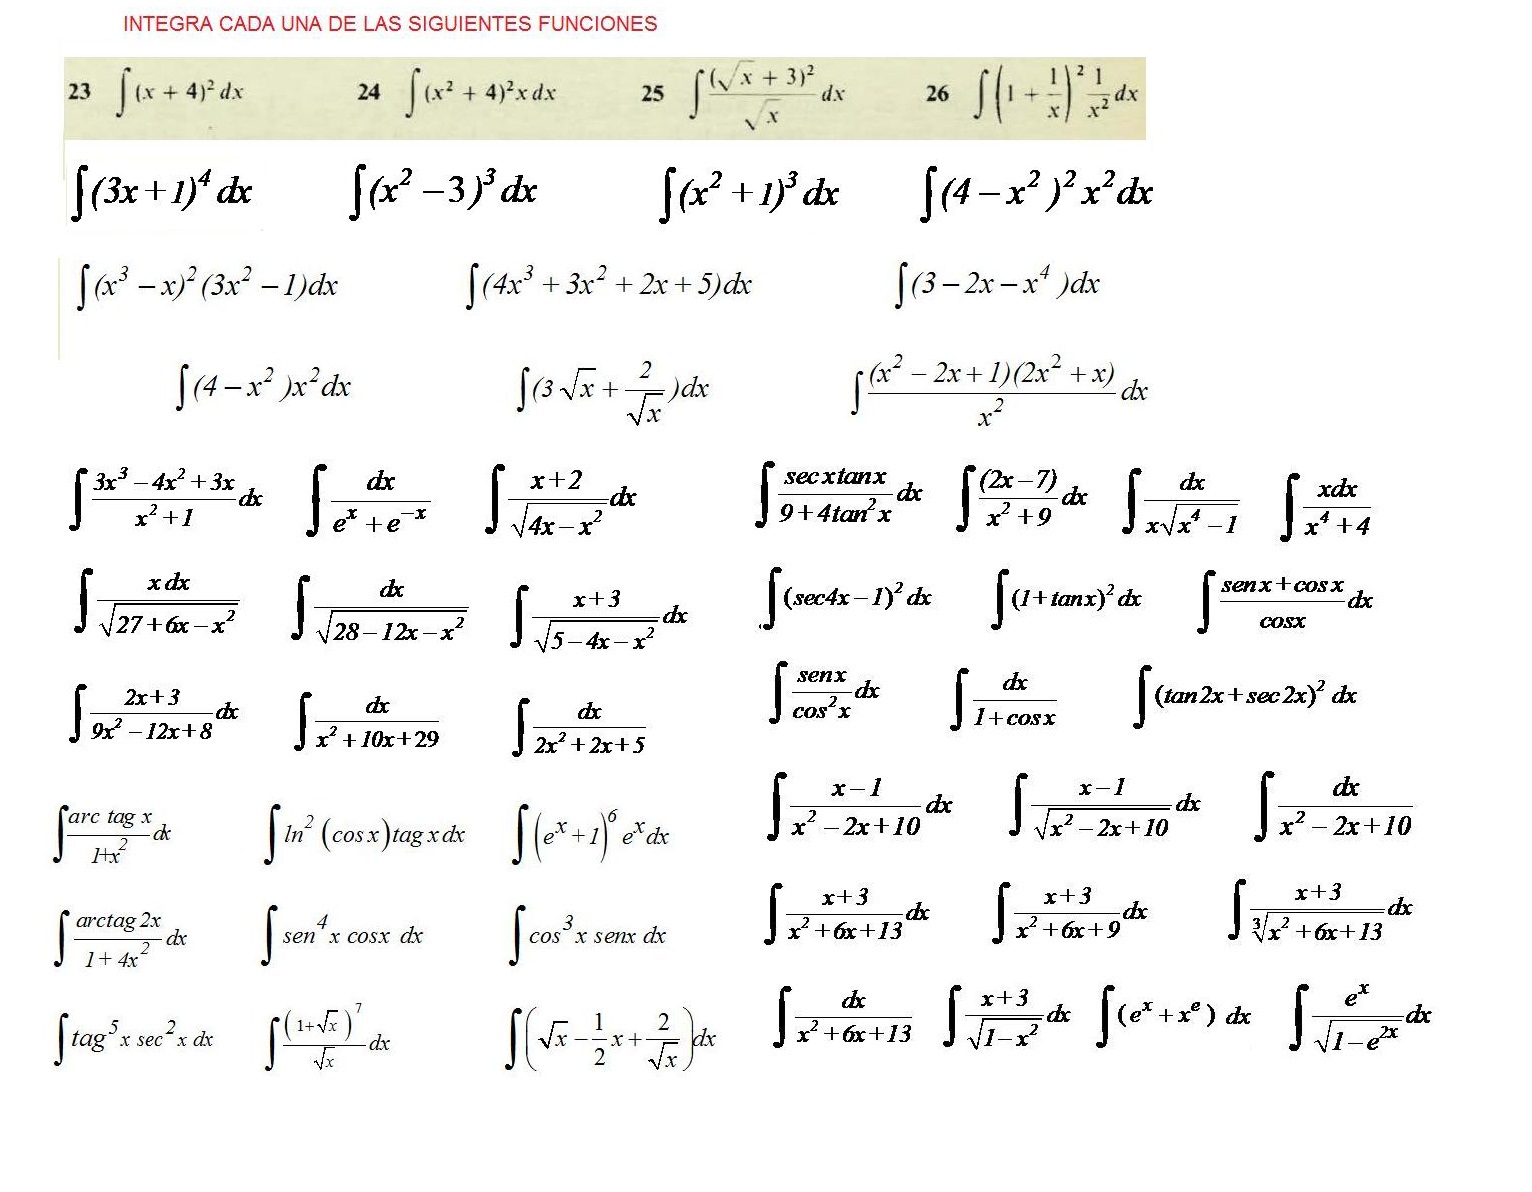 INTEGRA CADA UNA DE LAS SIGUIENTES FUNCIONES
23 ∫(x + 4)² dx 24 ∫(x² + 4)²x dx 25 ∫(√x + 3)²/√x dx 26 ∫(1 + 1/x)² 1/x² dx
∫(3x+1)⁴ dx ∫(x² −3)³ dx ∫(x² +1)³ dx ∫(4−x² )² x² dx
∫(x³ −x)² (3x² −1)dx ∫(4x³ +3x² +2x+5)dx ∫(3−2x−x⁴ )dx
∫(4−x² )x² dx ∫(3√x + 2/√x )dx ∫(x² −2x+1)(2x² +x)/x² dx
∫(3x³ −4x² +3x)/(x² +1) dx ∫dx/(eˣ +e⁻ˣ) ∫(x+2)/√(4x−x²) dx ∫secxtanx/(9+4tan²x) dx ∫(2x−7)/(x² +9) dx ∫dx/(x√(x⁴ −1)) ∫xdx/(x⁴ +4)
∫x dx/√(27+6x−x²) ∫dx/√(28−12x−x²) ∫(x+3)/√(5−4x−x²) dx ∫(sec4x−1)² dx ∫(1+tanx)² dx ∫(senx+cosx)/cosx dx
∫(2x+3)/(9x² −12x+8) dx ∫dx/(x² +10x+29) ∫dx/(2x² +2x+5) ∫senx/cos²x dx ∫dx/(1+cosx) ∫(tan2x+sec2x)² dx
∫arc tag x/(1+x²) dx ∫ln² (cosx)tag x dx ∫(eˣ +1)⁶ eˣ dx ∫(x−1)/(x² −2x+10) dx ∫(x−1)/√(x² −2x+10) dx ∫dx/(x² −2x+10)
∫arctag 2x/(1+4x²) dx ∫sen⁴ x cosx dx ∫cos³ x senx dx ∫(x+3)/(x² +6x+13) dx ∫(x+3)/(x² +6x+9) dx ∫(x+3)/∛(x² +6x+13) dx
∫tag⁵ x sec² x dx ∫(1+√x)⁷/√x dx ∫(√x − 1/2 x + 2/√x)dx ∫dx/(x² +6x+13) ∫(x+3)/√(1−x²) dx ∫(eˣ +xᵉ) dx ∫eˣ/√(1−e²ˣ) dx